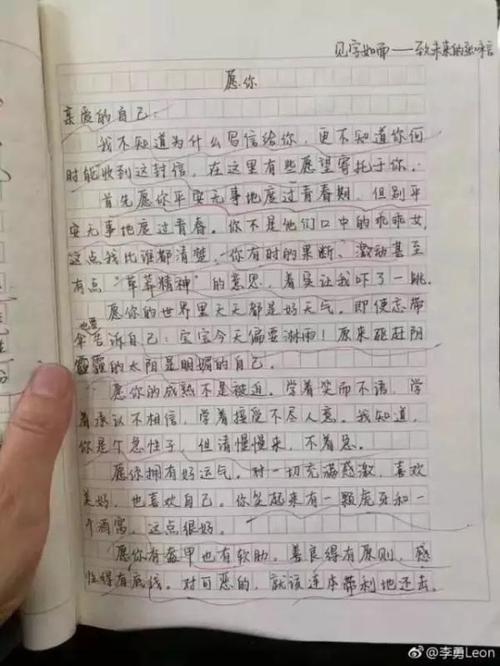 见字如面——致未来的
愿你
亲爱的自己:
我不知道为什么写信给你,更不知道你何
时能收到这封信,在这里有些愿望寄托于你。
首先愿你平安无事地度过青春期,但别平
安无事地度过青春。你不是他们口中的乖乖女,
这点我比谁都清楚。你有时的果断、激动甚至
有点“草莽精神”的意思,着实让我吓了一跳。
愿你的世界里天天都是好天气。即使忘带
伞也要告诉自己:宝宝今天偏要淋雨!原来能赶阴
霾的太阳是明媚的自己。
愿你的成熟不是被迫。学着笑而不语,学
着承认不相信,学着接受不尽人意。我知道,
你是个急性子,但请慢慢来,不着急。
愿你拥有好运气。对一切充满感激,喜欢
美好,也喜欢自己。你笑起来有一颗虎牙和一
个酒窝,这点很好。
愿你有盔甲也有软肋。善良得有原则,感
性得有底线。对可恶的,就该连本带利地还击。
@李勇Leon